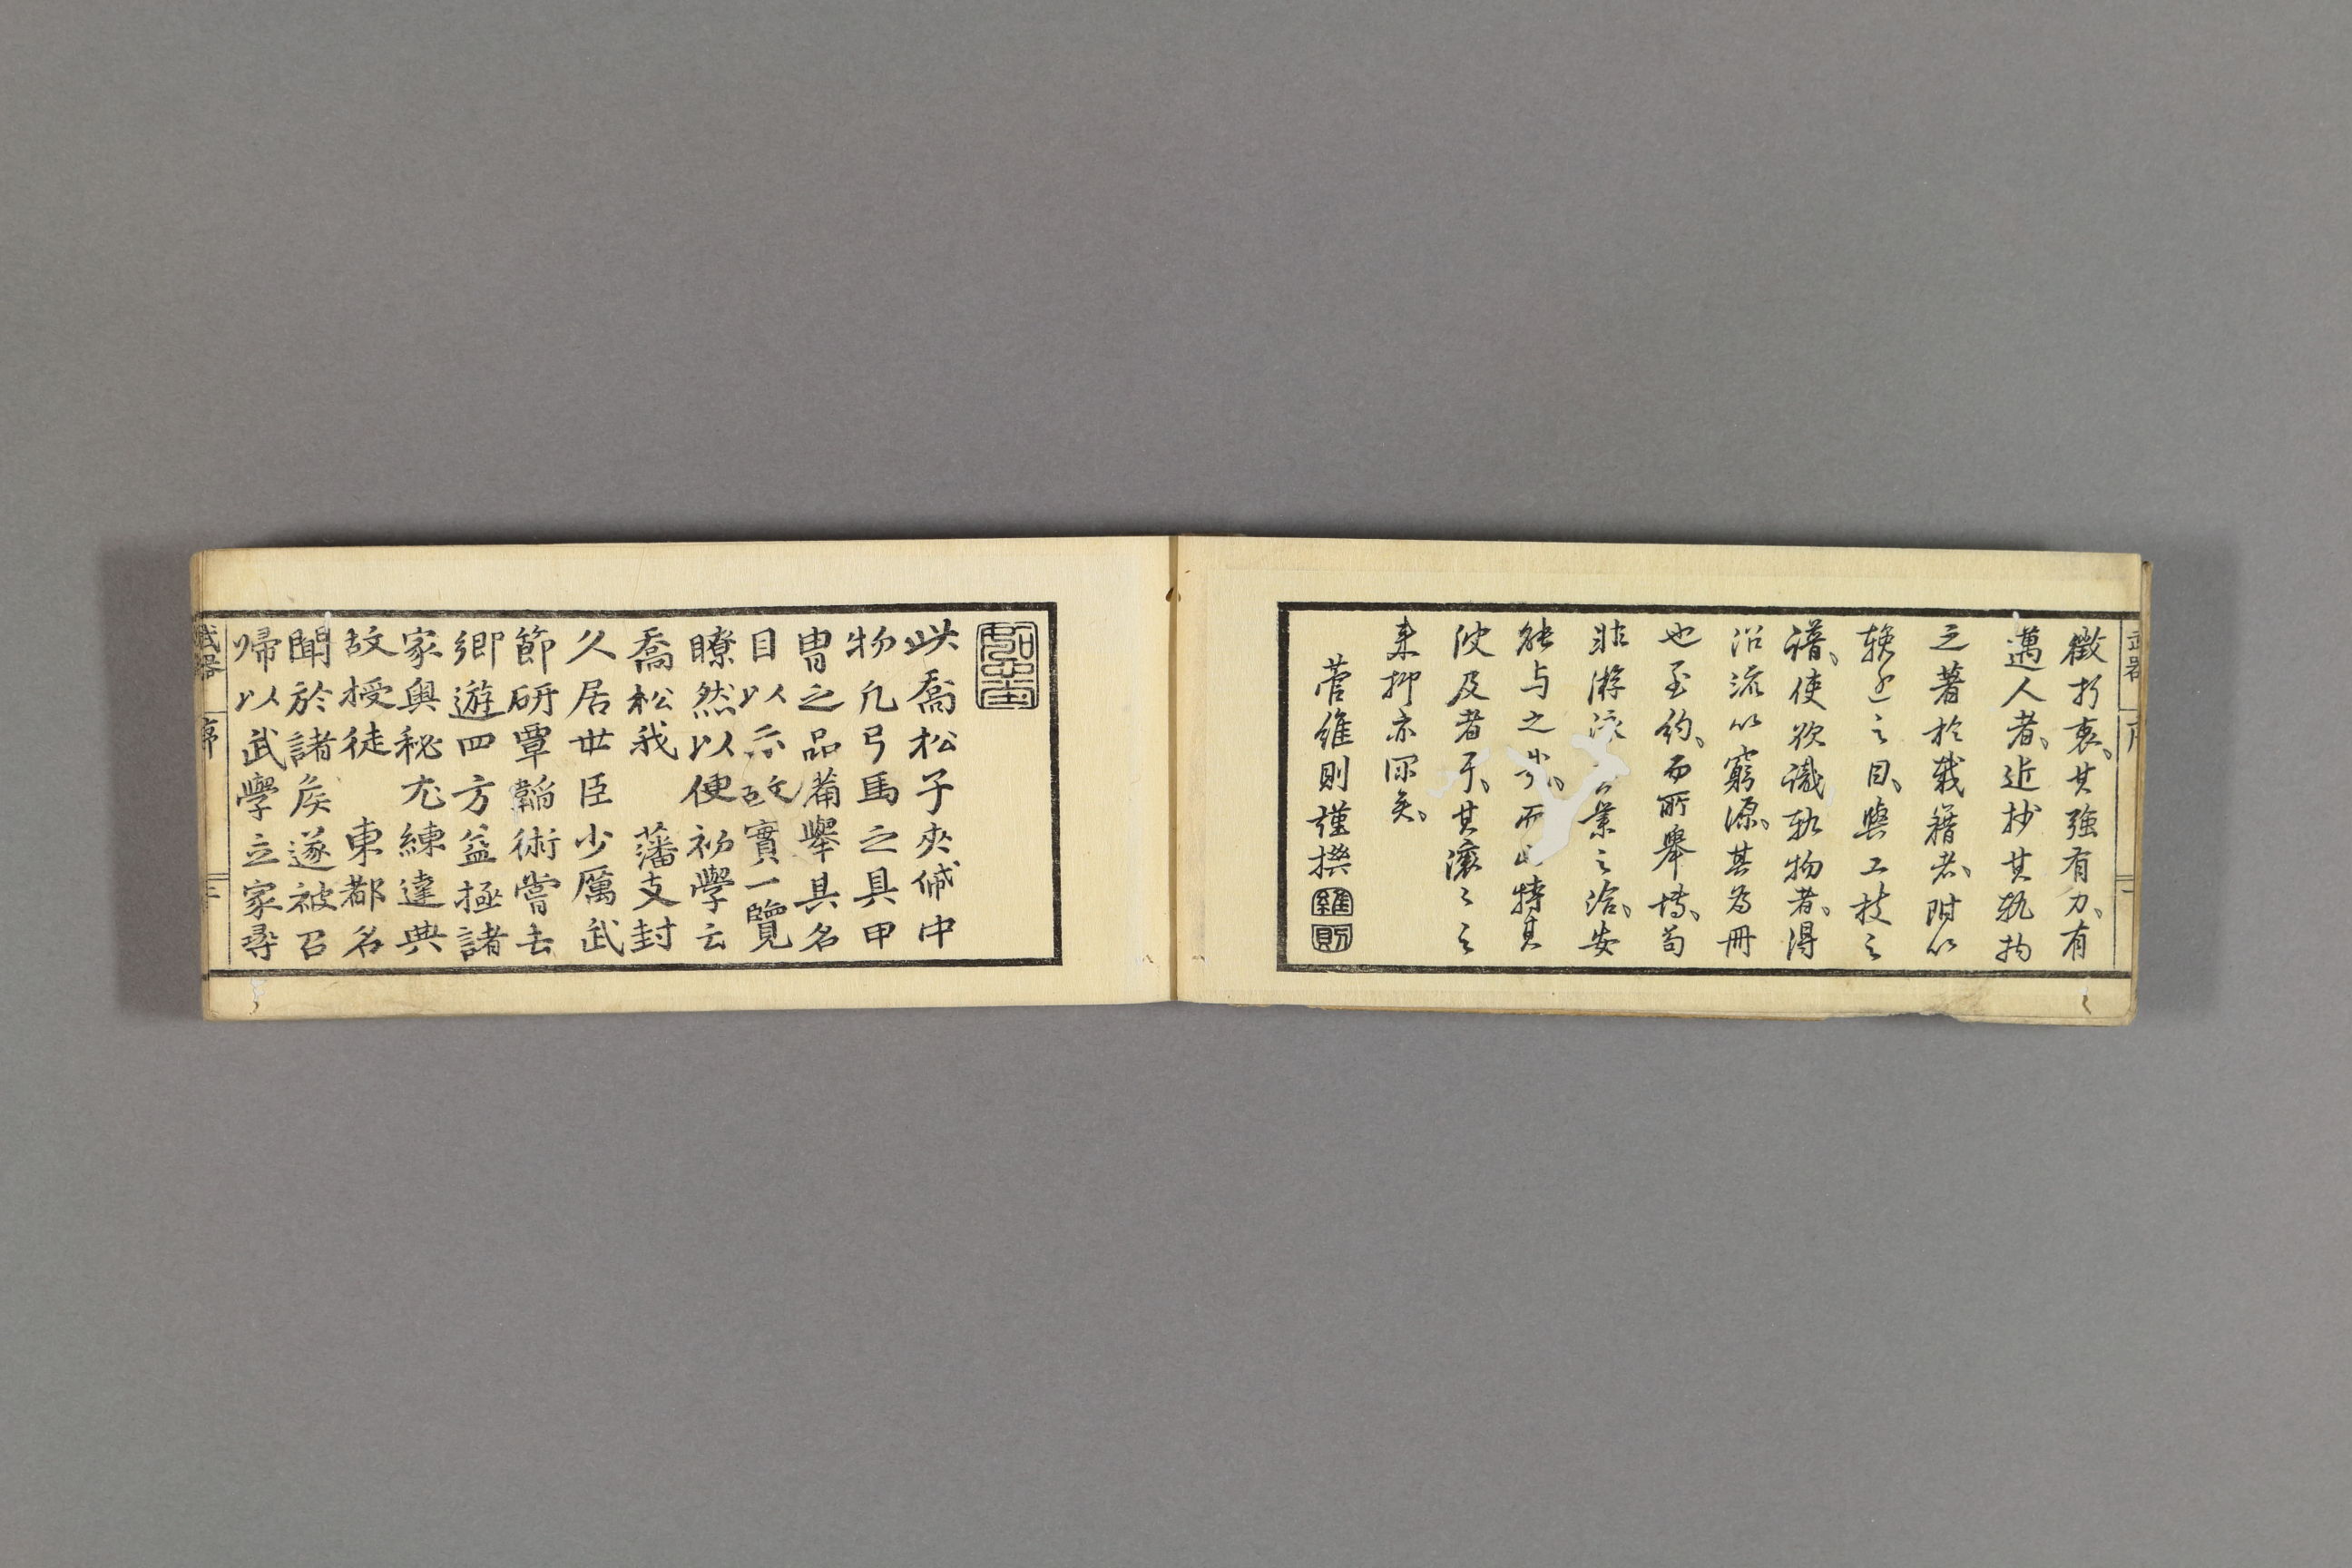 徵折衷、其強有力、有
邁人者、近抄其軌物
之著於載籍者、附以
之目、與工技之
譜、使欲識軌物者、得
沿流以窮源、其為冊
也至約、而所舉博、苟
非游泳業之洽、安
能与之哉、而特其
波及者乎、其滾〻之
来抑亦深矣、
菅維則謹撰
維則
武器
序
二
此喬松子夾帒中
物凡弓馬之具甲
冑之品莆舉具名
目以示故實一覽
瞭然以便初學云
喬松我 藩支封
久居世臣少厲武
節研覃韜術嘗去
鄉遊四方益極諸
家輿秘尤練達典
故授徒 東都名
聞於諸矦遂被召
歸以武學立家尋
武器
序
三